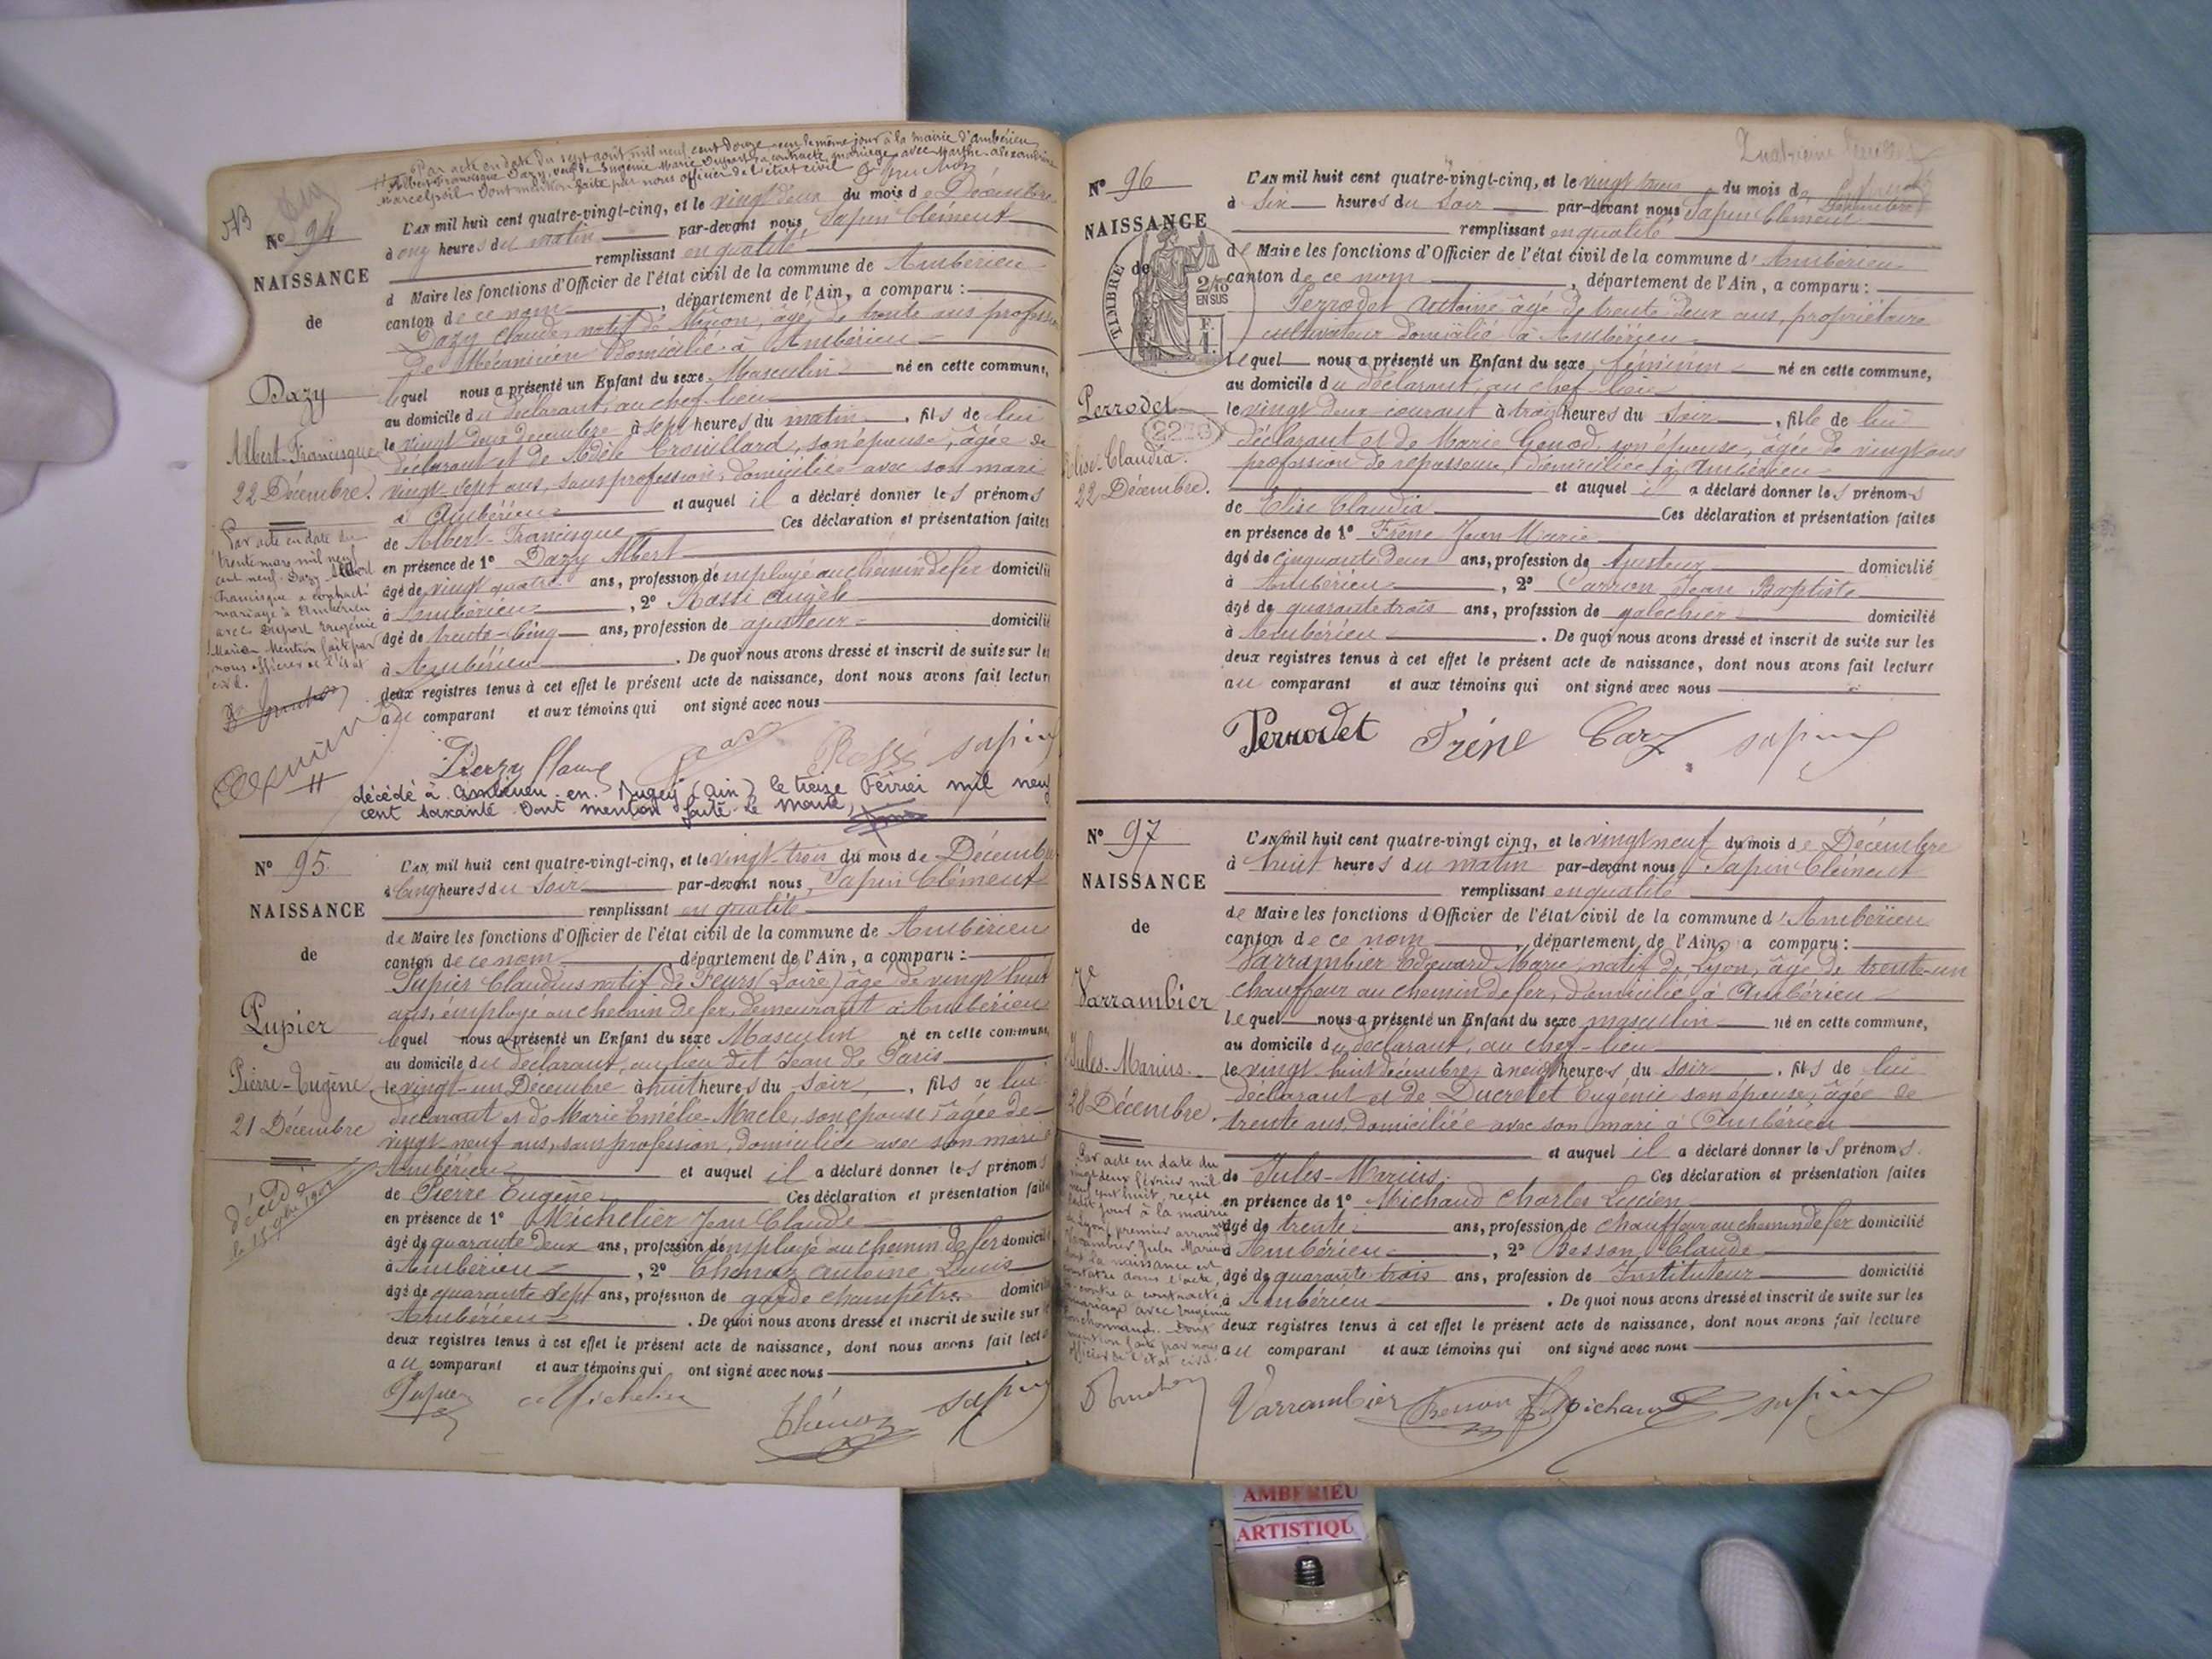 Par acte en date du sept août mil neuf cent douze en le même jour à la mairie d'Ambérieu
Albert Francisque Dazy, veuf de Eugénie Marie Dupont a contracté mariage avec Marthe
dont mention faite par nous officier de l'état civil
N° 94
NAISSANCE
de
Dazy
Albert-Francisque
22 Décembre.
Par acte en date du
trente mars mil neuf
cent neuf Dazy Albert
Francisque a contracté
mariage à Ambérieu
avec Dupont Eugénie
Marie. Mention faite par
nous officier de l'état
civil.
L'AN mil huit cent quatre-vingt-cinq, et le vingt deux du mois de Décembre
à onze heures du matin par-devant nous Sapin Clément
remplissant en qualité
d Maire les fonctions d'Officier de l'état civil de la commune de Ambérieu
canton de ce nom, département de l'Ain, a comparu :
Dazy Claude, natif de Mâcon, âgé de trente ans profession
de Mécanicien domicilié à Ambérieu
lequel nous a présenté un Enfant du sexe Masculin né en cette commune,
au domicile du déclarant, au chef-lieu
le vingt deux décembre à sept heures du matin, fils de lui
déclarant et de Adèle Crouillard, son épouse, âgée de
vingt-sept ans, sans profession, domiciliée avec son mari
à Ambérieu et auquel il a déclaré donner les prénoms
de Albert-Francisque Ces déclaration et présentation faites
en présence de 1° Dazy Albert
âgé de vingt quatre ans, profession de employé au chemin de fer domicilié
à Ambérieu, 2° Rossi Angèle
âgé de trente-cinq ans, profession de ajusteur domicilié
à Ambérieu. De quoi nous avons dressé et inscrit de suite sur les
deux registres tenus à cet effet le présent acte de naissance, dont nous avons fait lecture
au comparant et aux témoins qui ont signé avec nous
Dazy Claude Rossi Sapin
décédé à Ambérieu-en-Bugey (Ain) le treize Février mil neuf
cent soixante Dont mention faite Le Maire,
N° 95
NAISSANCE
de
Pupier
Pierre-Eugène
21 Décembre
décédé
L'AN mil huit cent quatre-vingt-cinq, et le vingt-trois du mois de Décembre
à cinq heures du soir par-devant nous, Sapin Clément
remplissant en qualité
de Maire les fonctions d'Officier de l'état civil de la commune de Ambérieu
canton de ce nom département de l'Ain, a comparu :
Pupier Claudius natif de Feurs (Loire) âgé de vingt huit
ans, employé au chemin de fer, demeurant à Ambérieu
lequel nous a présenté un Enfant du sexe Masculin né en cette commune,
au domicile du déclarant, au lieu dit Jean de Paris
le vingt-un Décembre à huit heures du soir, fils de lui
déclarant et de Marie Emélie Macle, son épouse, âgée de
vingt neuf ans, sans profession, domiciliée avec son mari à
Ambérieu et auquel il a déclaré donner les prénoms
de Pierre Eugène Ces déclaration et présentation faites
en présence de 1° Michelier Jean Claude
âgé de quarante deux ans, profession de employé au chemin de fer domicilié
à Ambérieu, 2° Chenoz Antoine Louis
âgé de quarante sept ans, profession de garde champêtre domicilié
Ambérieu. De quoi nous avons dressé et inscrit de suite sur les
deux registres tenus à cet effet le présent acte de naissance, dont nous avons fait lecture
au comparant et aux témoins qui ont signé avec nous
Pupier Michelier Chenoz Sapin
N° 96
NAISSANCE
de
TIMBRE
2/10
EN SUS
Perrodet
Elise-Claudia.
22 Décembre.
L'AN mil huit cent quatre-vingt-cinq, et le vingt trois du mois de Décembre
à six heures du soir par-devant nous Sapin Clément
remplissant en qualité
de Maire les fonctions d'Officier de l'état civil de la commune d'Ambérieu
canton de ce nom, département de l'Ain, a comparu :
Perrodet Antoine, âgé de trente deux ans, propriétaire
cultivateur domicilié à Ambérieu
lequel nous a présenté un Enfant du sexe féminin né en cette commune,
au domicile du déclarant, au chef-lieu
le vingt deux courant à trois heures du soir, fille de lui
déclarant et de Marie Genod, son épouse, âgée de vingt ans
profession de repasseuse, domiciliée à Ambérieu
et auquel il a déclaré donner les prénoms
de Elise Claudia Ces déclaration et présentation faites
en présence de 1° Frêne Jean Marie
âgé de cinquante deux ans, profession de Ajusteur domicilié
à Ambérieu, 2° Carron Jean Baptiste
âgé de quarante trois ans, profession de galochier domicilié
à Ambérieu. De quoi nous avons dressé et inscrit de suite sur les
deux registres tenus à cet effet le présent acte de naissance, dont nous avons fait lecture
au comparant et aux témoins qui ont signé avec nous
Perrodet Frène Carr Sapin
N° 97
NAISSANCE
de
Varrambier
Jules-Marius.
28 Décembre.
Par acte en date du
vingt deux février mil
neuf cent huit, reçu
ledit jour à la mairie
de Lyon, premier arrond
Varrambier Jules Marius
dont la naissance est
constatée dans l'acte
ci-contre a contracté
mariage avec Eugénie
Dont
mention faite par nous
officier de l'état civil.
L'AN mil huit cent quatre-vingt cinq, et le vingt neuf du mois de Décembre
à huit heures du matin par-devant nous Sapin Clément
remplissant en qualité
de Maire les fonctions d'Officier de l'état civil de la commune d'Ambérieu
canton de ce nom, département de l'Ain, a comparu :
Varrambier Edouard Marie, natif de Lyon, âgé de trente-un
chauffeur au chemin de fer, domicilié à Ambérieu
lequel nous a présenté un Enfant du sexe masculin né en cette commune,
au domicile du déclarant, au chef-lieu
le vingt huit décembre, à neuf heures du soir, fils de lui
déclarant et de Ducretet Eugénie son épouse, âgée de
trente ans, domiciliée avec son mari à Ambérieu
et auquel il a déclaré donner les prénoms
de Jules-Marius. Ces déclaration et présentation faites
en présence de 1° Michaud Charles Lucien
âgé de trente ans, profession de chauffeur au chemin de fer domicilié
à Ambérieu, 2° Besson Claude
âgé de quarante trois ans, profession de Instituteur domicilié
à Ambérieu. De quoi nous avons dressé et inscrit de suite sur les
deux registres tenus à cet effet le présent acte de naissance, dont nous avons fait lecture
au comparant et aux témoins qui ont signé avec nous
Varrambier Besson Michaud Sapin
AMBERIEU
ARTISTIQU